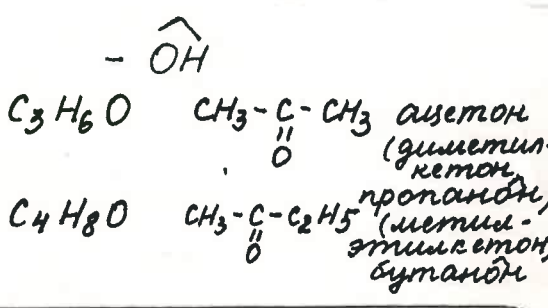 - OH
C3H6O CH3-C-CH3 ацетон
(диметил-
O кетон,
пропанон)
C4H8O CH3-C-C2H5 (метил-
этилкетон,
O бутанон